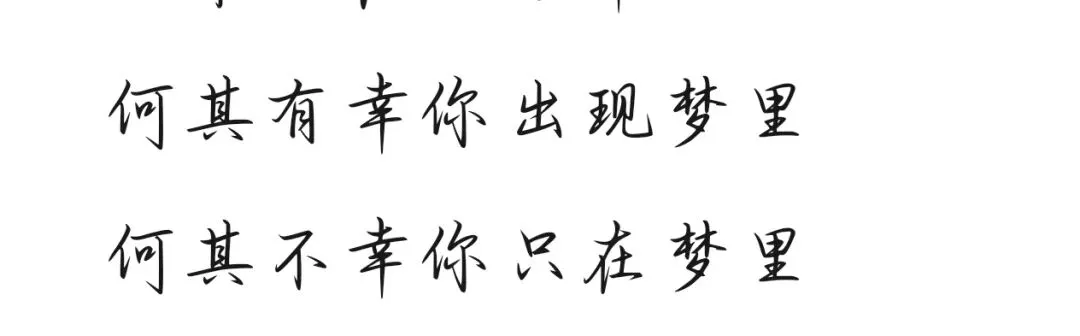 何其有幸你出现梦里
何其不幸你只在梦里